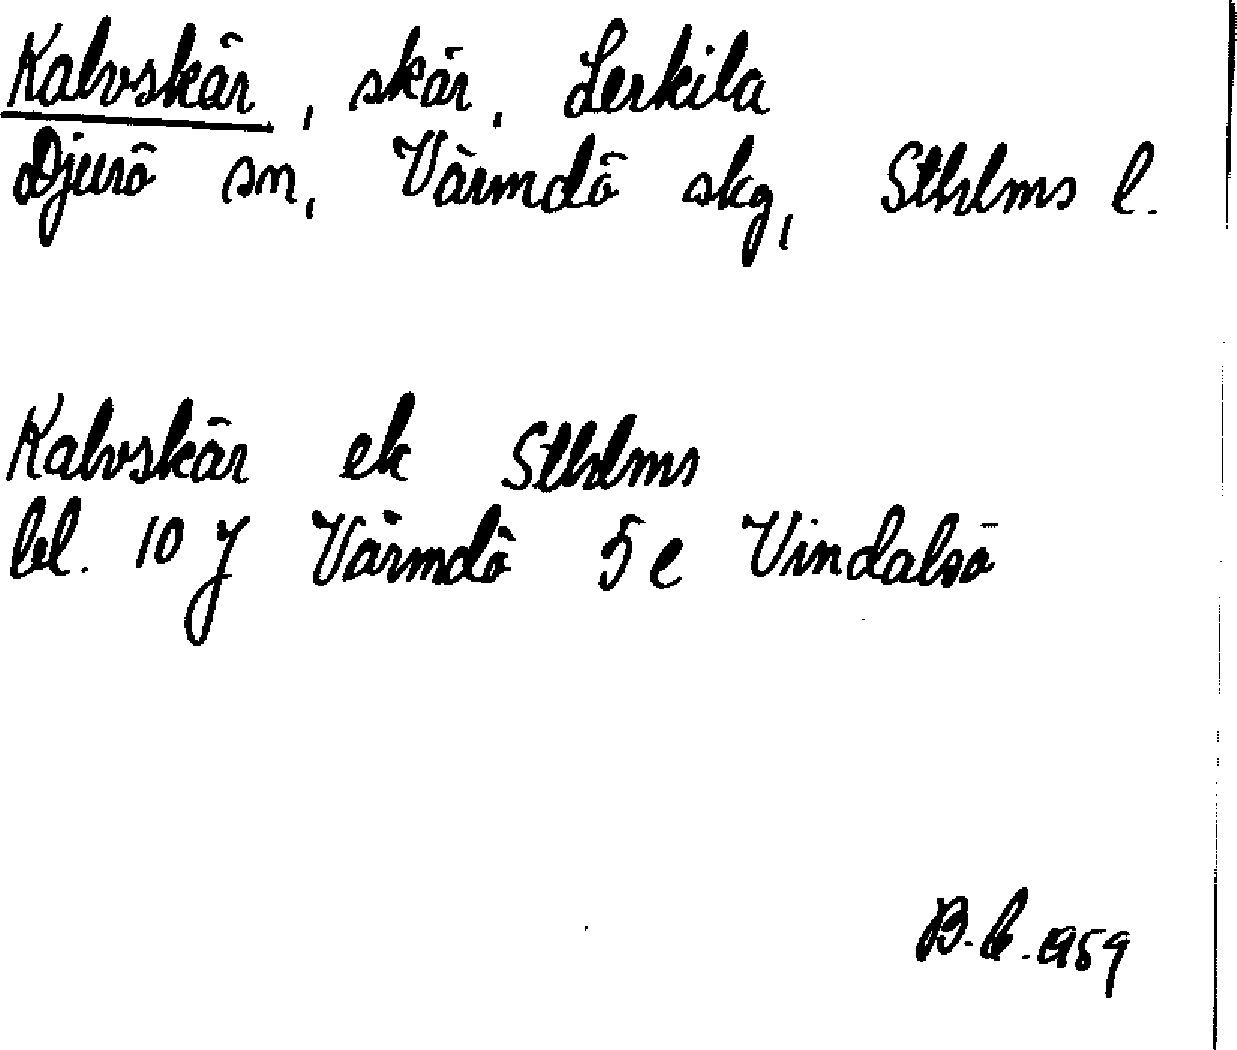 Kalvskär, skär, Lerkila
Djurö sn, Värmdö skg, Sthlms l.
Kalvskär ek Sthlms
bl. 10 J Värmdö 5 e Vindalsö
1959